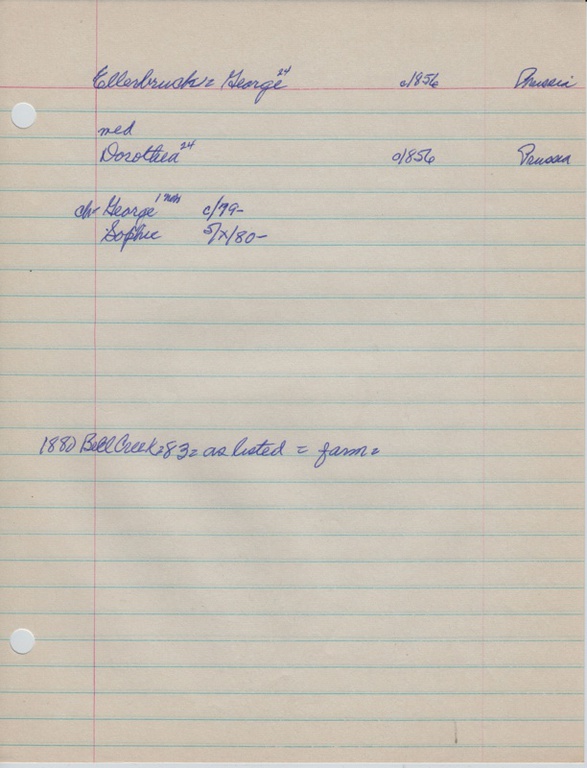 Ellerbruck = George 24 c/1856 Prussia
med
Dorothea 24 c/1856 Prussia
ch- George c/79-
Sophie 5/x/80-
1880 Bell Creek = 83 = as listed = farm =